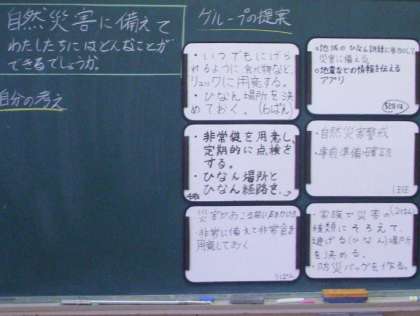 自然災害に備えて
わたしたちにはどんなことが
できるでしょうか。
自分の考え
グループの提案
・いつでもにげら
れるように食べ物など、
リュックに用意する。
・ひなん場所を決
めておく。(1ぱん)
・地域のひなん訓練に参加して
災害に備える
・地震などの情報を伝える
アプリ
・非常袋を用意し、
定期的に点検を
する。
・ひなん場所と
ひなん経路を
・自然災害警戒
・事前準備
災害がおこる前に
・非常に備えて非常食を
用意しておく
・家族で災害の
種類にそろえて、
逃げる(ひなん)場所
を決める。
・防災バッグを作る。